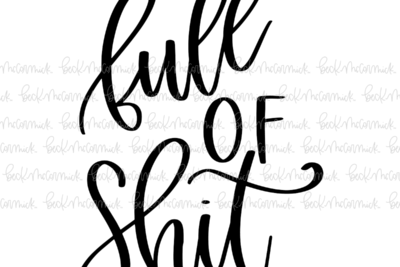 full
OF
Shit